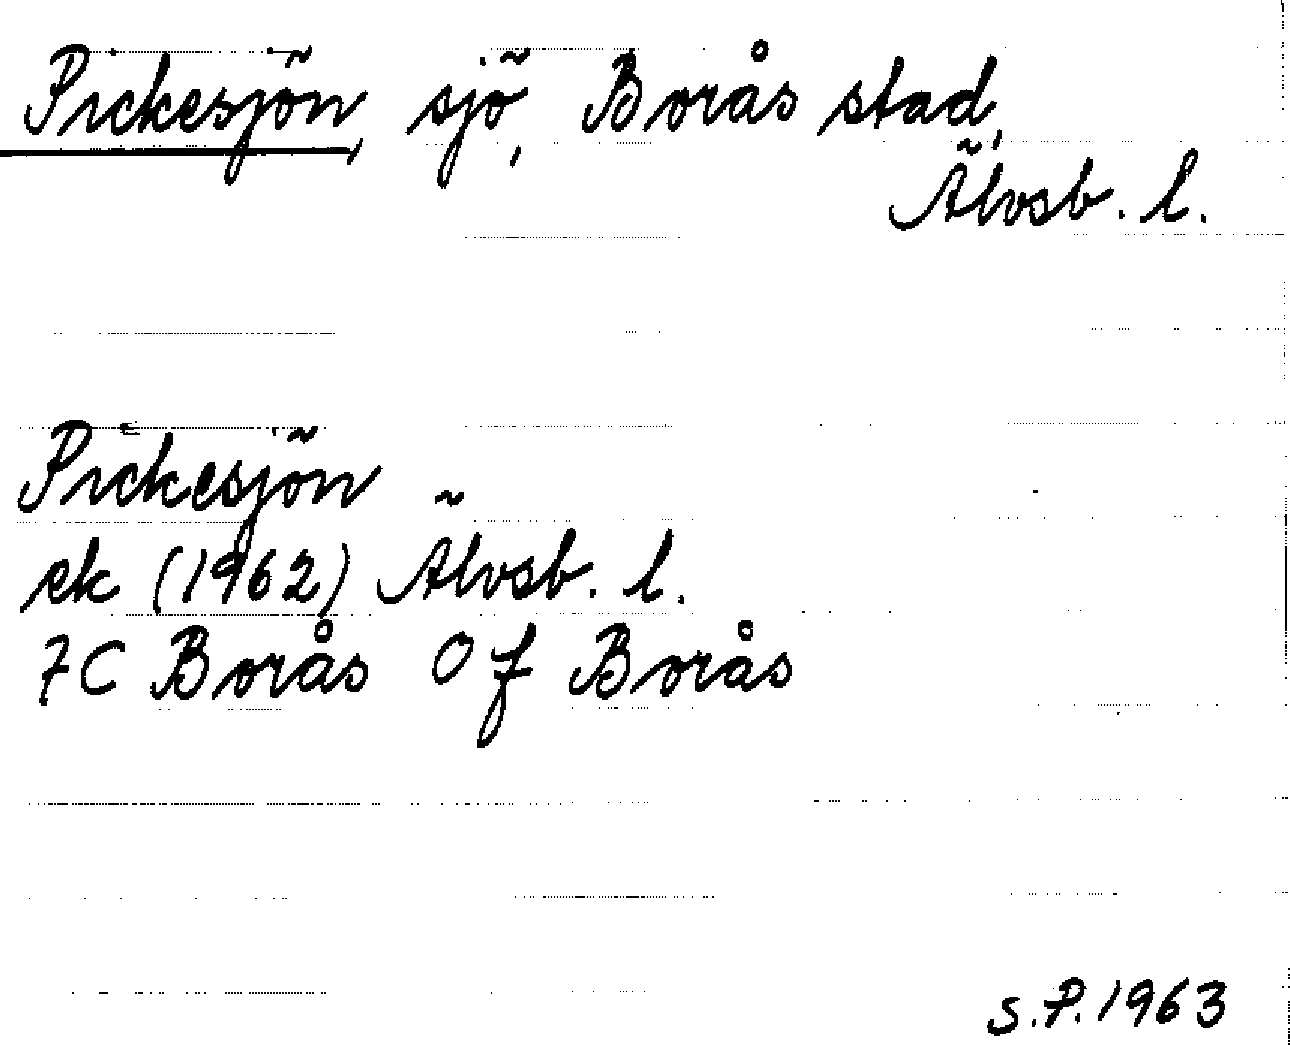 Pickesjön, sjö, Borås stad,
Älvsb. l.
Pickesjön
ek (1962) Älvsb. l.
7C Borås 0f Borås
S.P. 1963